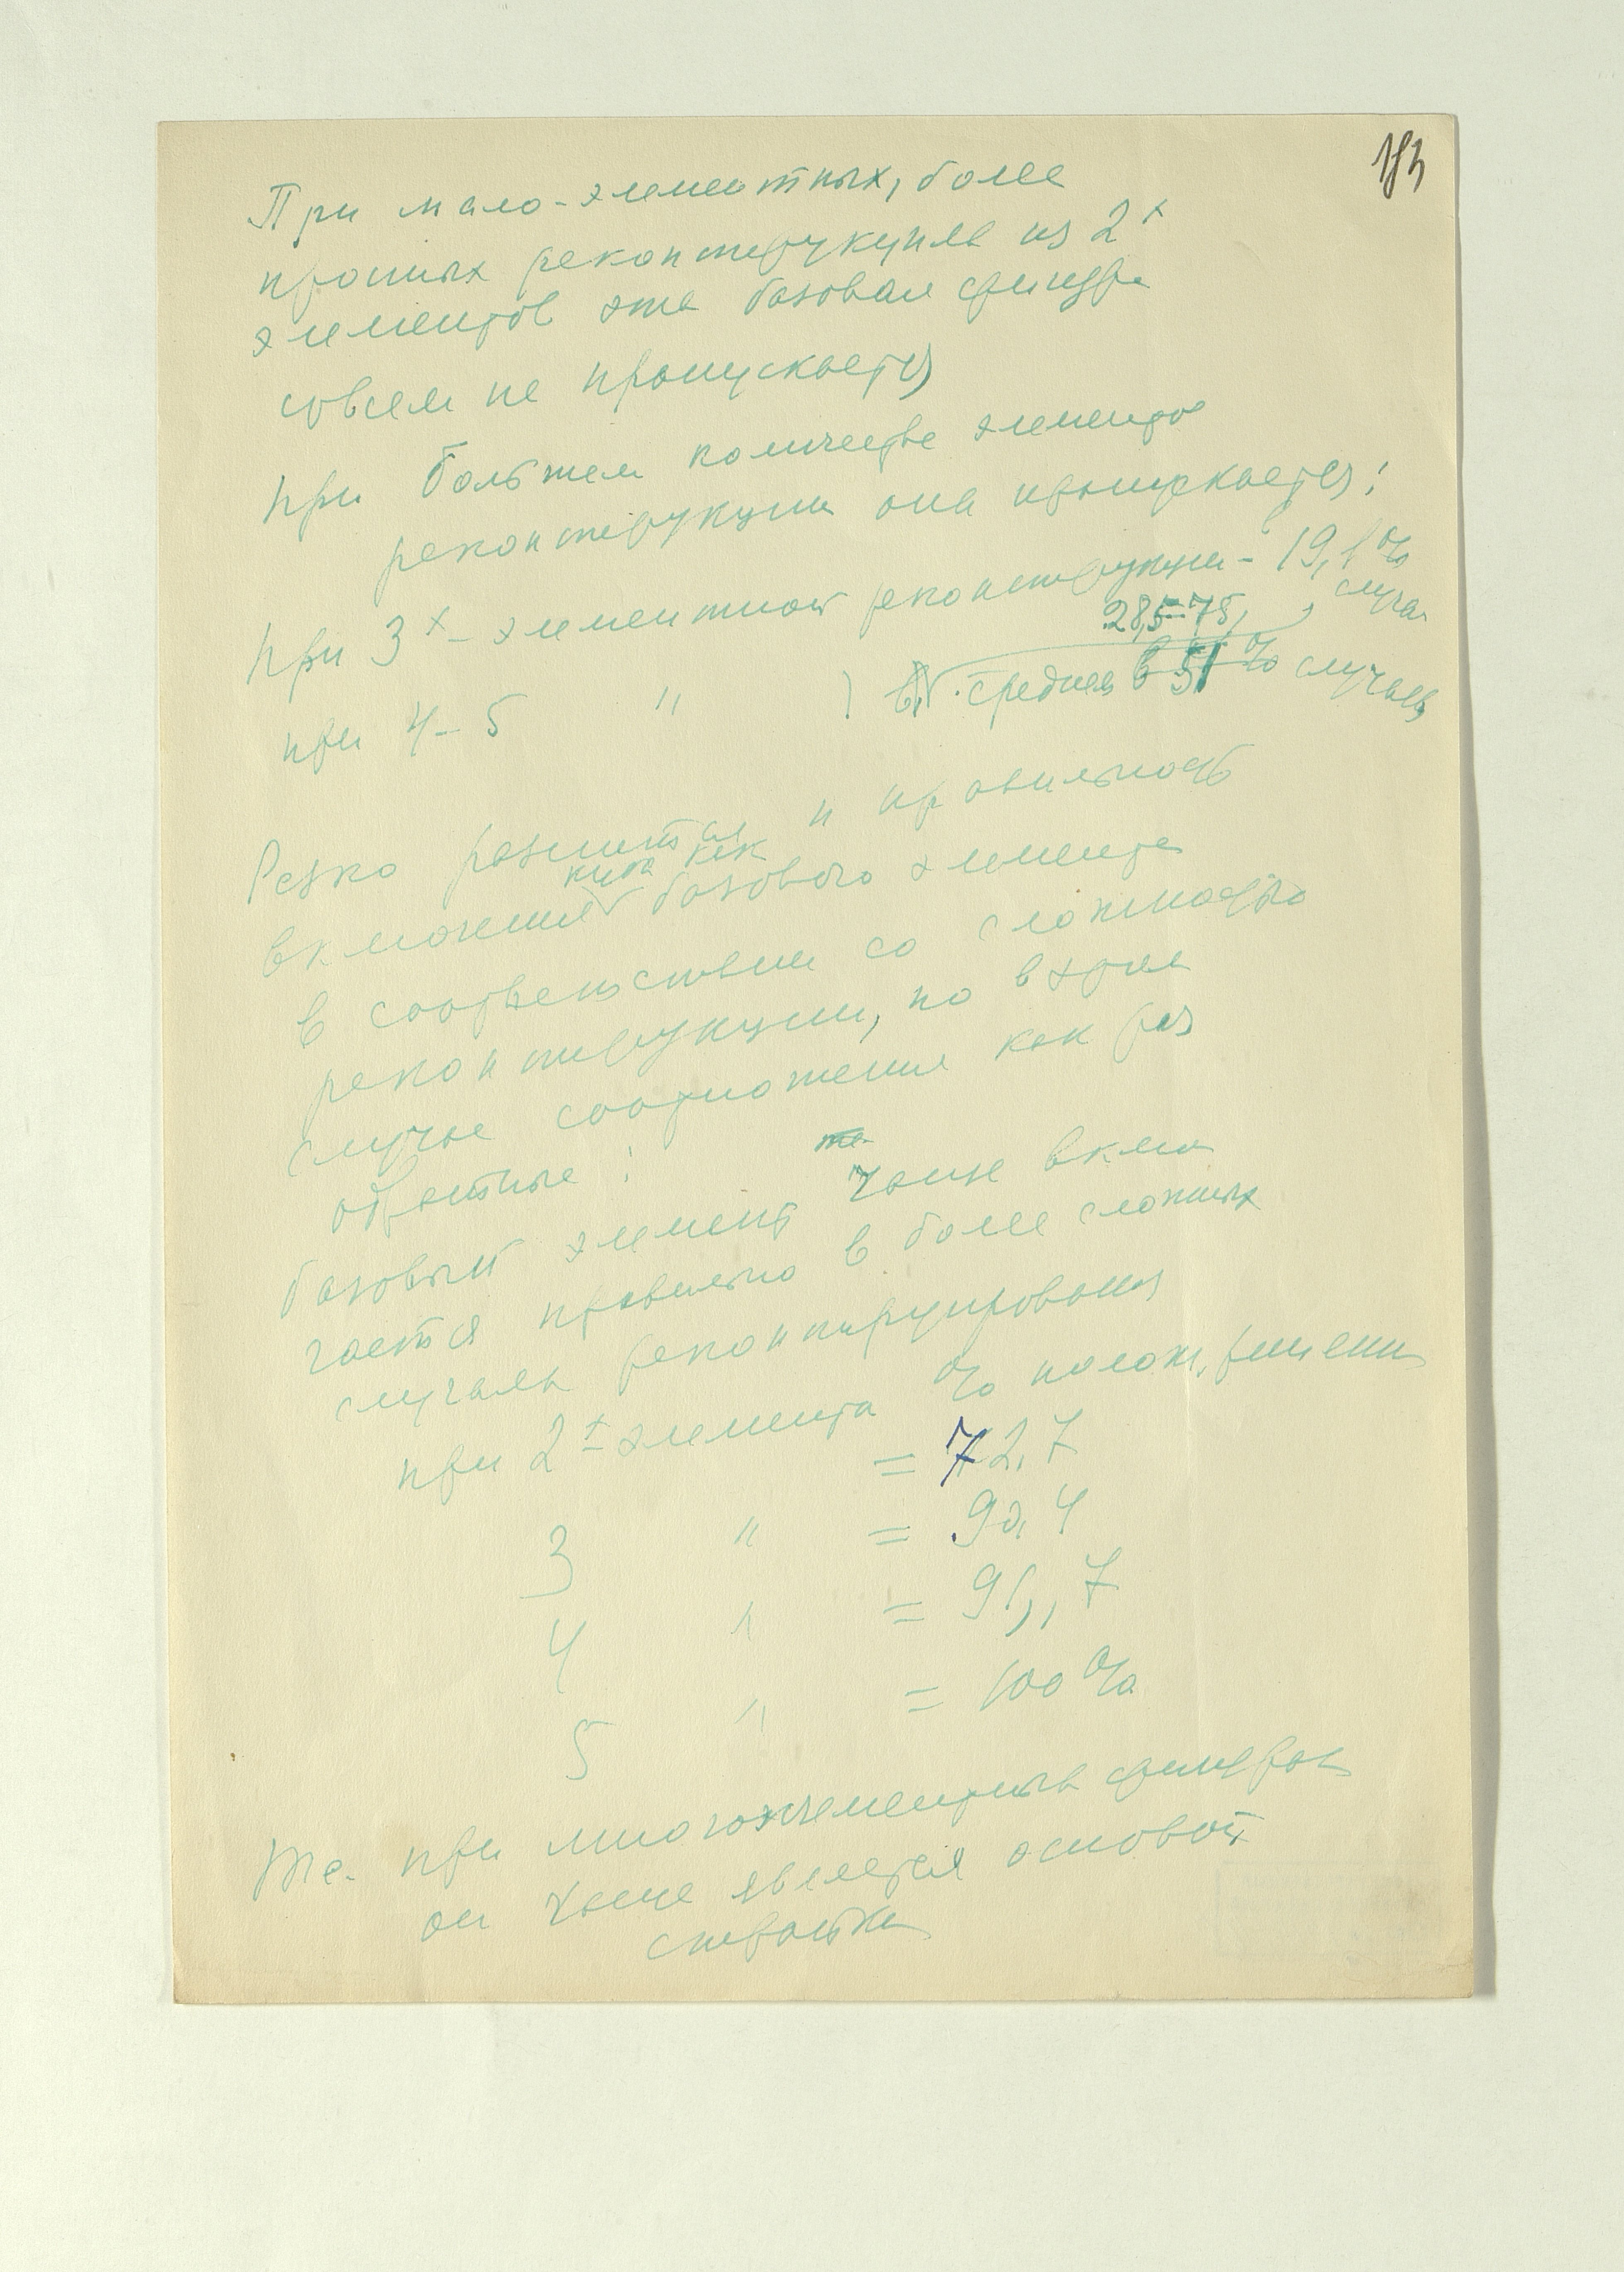 При мало-элементных, более
простых реконструкциях из 2х
элементов эта базовая фигура
совсем не пропускается
при большем количестве элементов
реконструкции она пропускается:
при 3х-элементной реконструкции - 19,1% случая
28,5=75,
при 4-5 " ) в среднем в 51% случаев
Резко разнится и правильность
куба как
включения базового элемента
в соответствии со сложностью
реконструкции, но в этом
случае соотношения как раз
обратные:
базовый элемент чаще вклю
чается правильно в более сложных
случаях реконструирования
% полож. решений
при 2х-элемента = 72,7
3 " = 90,4
4 " = 91,7
5 " = 100%
Те. при многоэлементных фигурах
он чаще является основой